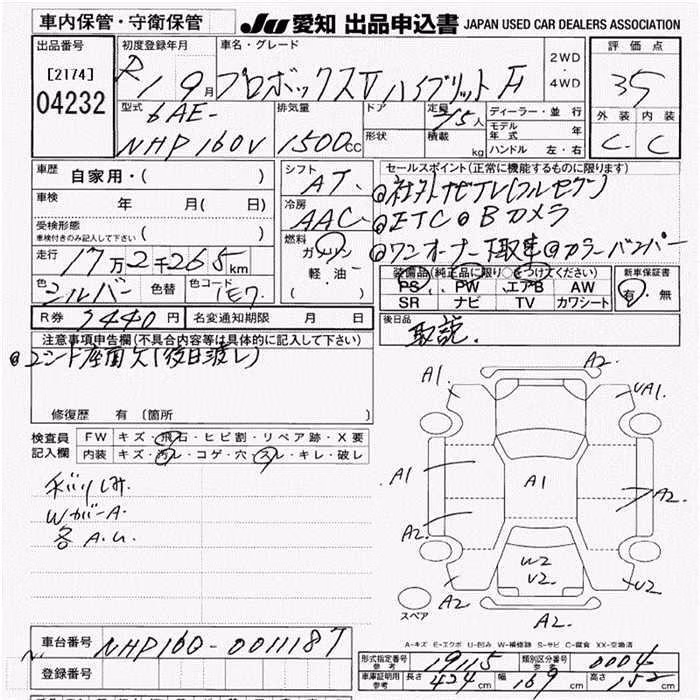 車内保管・守衛保管 JU 愛知 出品申込書 JAPAN USED CAR DEALERS ASSOCIATION
出品番号 初度登録年月 車名・グレード 2WD・4WD 評価点
[2174] R 1 9月 プロボックスV ハイブリット F 3.5
04232 型式 排気量 ドア 定員 2/5人 ディーラー・並行 外装 内装
6AE- 形状 積載 kg モデル年式 年 C. C
NHP160V 1500cc ハンドル 左・右
車歴 自家用・( ) シフト AT. セールスポイント(正常に機能するものに限ります)
車検 年 月( 日) 冷房 AAC ◎社外ナビTV(フルセグ)
受検形態 ◎ETC◎Bカメラ
車検付きのみ記入して下さい ( ) 燃料 ガソリン ◎ワンオーナー下取車◎カラーバンパー
走行 17万2千265km 軽油 装備品(純正品に限り○をつけてください) 新車保証書
色 シルバー 色替 色コード 1E7 ( ) PS PW エアB AW 有・無
SR ナビ TV カワシート
R券 円 名変通知期限 月 日 後日品
注意事項申告欄(不具合内容等は具体的に記入して下さい) 取説.
修復歴 有 (箇所 )
検査員記入欄 FW キズ・飛石・ヒビ割・リペア跡・X要
内装 キズ・汚レ・コゲ・穴・スレ・キレ・破レ
WカバーA
各A.U.
A1. A2. UA1.
A1 A1 A2.
A2.
W2
V2.
A2. A2. U2
スペア
A-キズ E-エクボ U-凹み W-補修跡 S-サビ C-腐食 XX-交換済
車台番号 NHP160-0011187
登録番号
形式指定番号 参考 19115 類別区分番号 参考 0004
車庫証明用 参考 長さ 424cm 幅 169cm 高さ 152cm